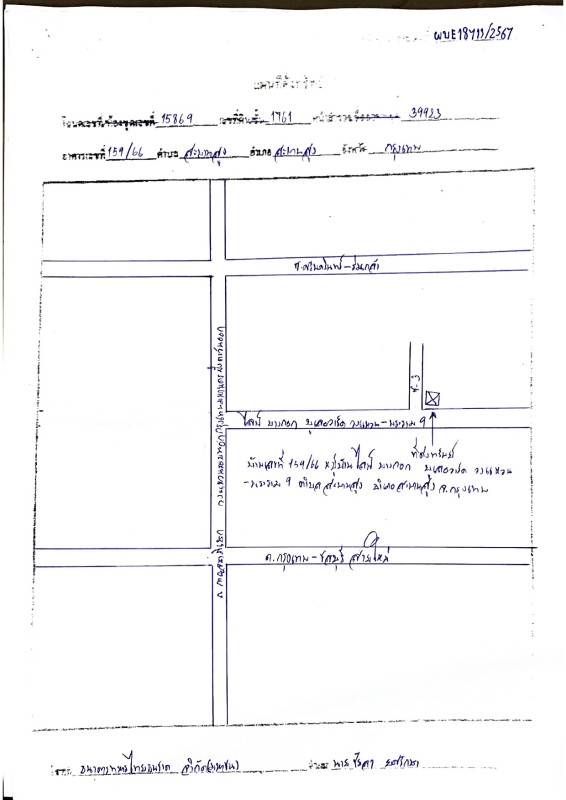 ผบE18713/2567
แผนที่ตั้งทรัพย์
โฉนดเลขที่/ห้องชุดเลขที่ 15869 เลขที่ดิน 1761 หน้าสำรวจ 39923
อาคารเลขที่ 159/66 ตำบล สะพานสูง อำเภอ สะพานสูง จังหวัด กรุงเทพ
ถ.กาญจนาภิเษก
ซ.3
ไลฟ์ บางกอก บูเลอวาร์ด วงแหวน-พระราม 9
ที่ตั้งทรัพย์
บ้านเลขที่ 159/66 หมู่บ้าน ไลฟ์ บางกอก บูเลอวาร์ด วงแหวน
-พระราม 9 ตำบล สะพานสูง อำเภอ สะพานสูง จ.กรุงเทพ
ถ.กรุงเทพ-ชลบุรี สายใหม่
ธนาคารทหารไทยธนชาต จำกัด(มหาชน) นาย